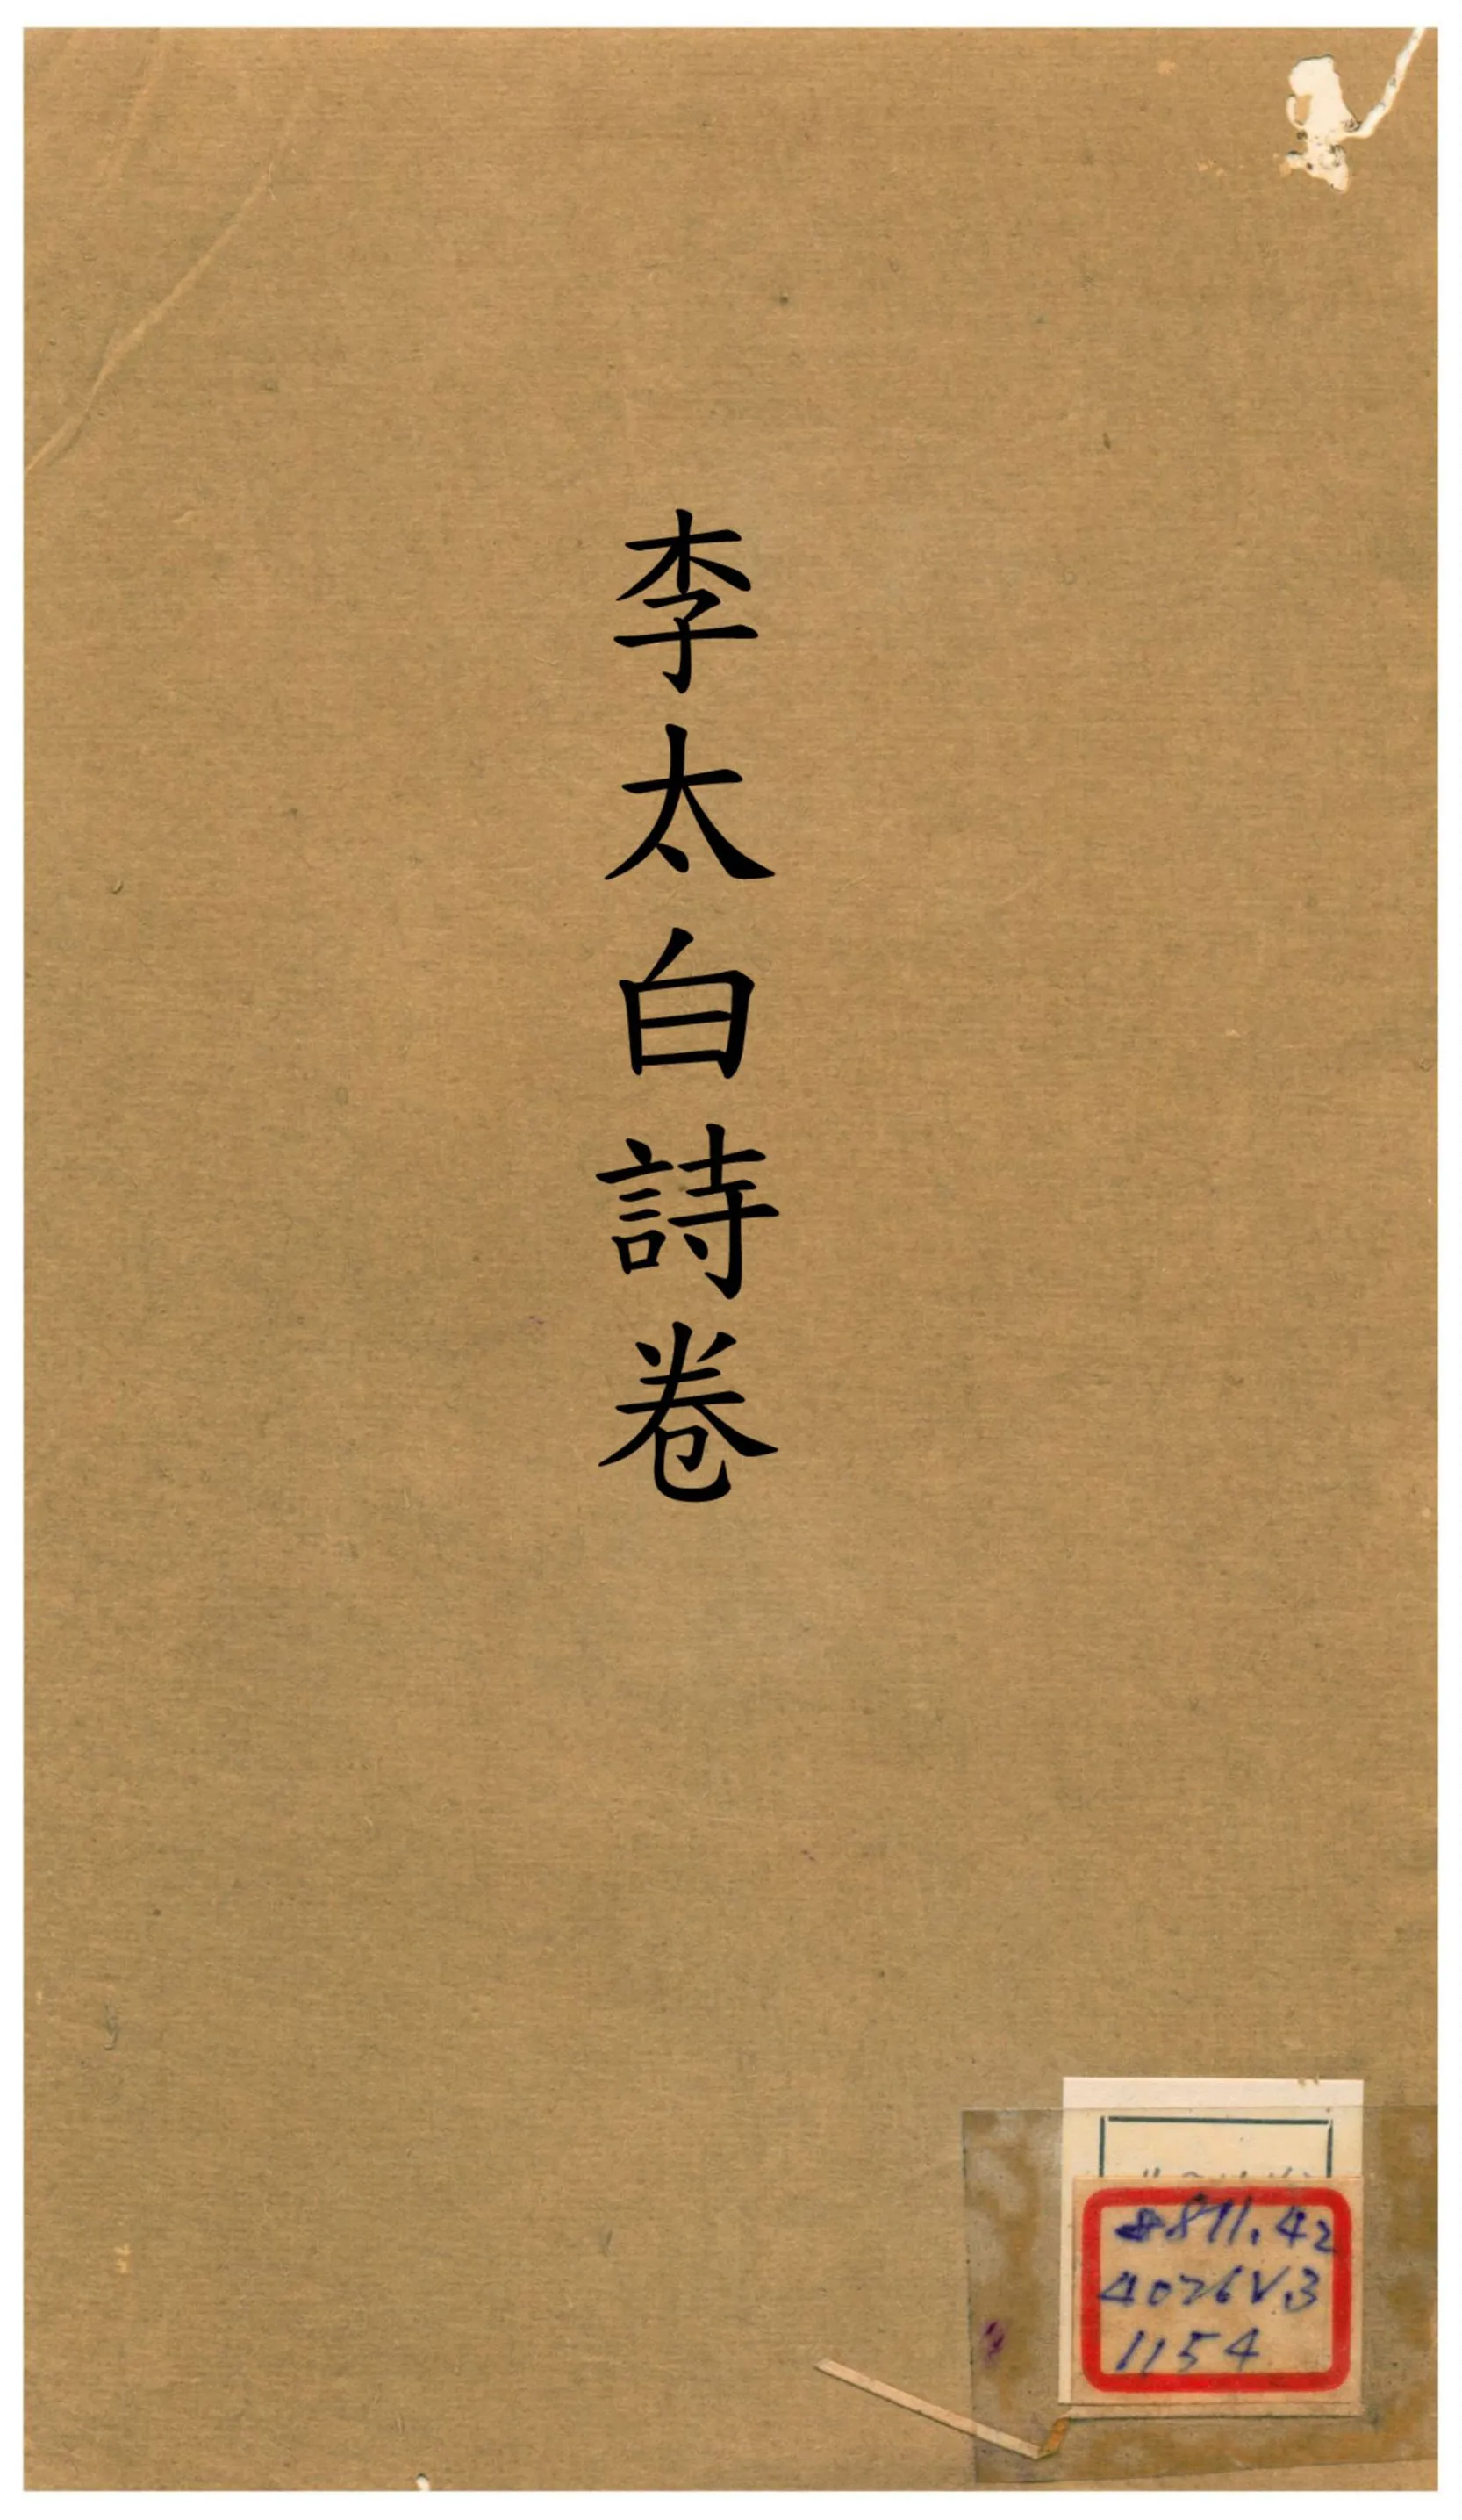 李太白詩卷
8811.42
4026V.3
1154